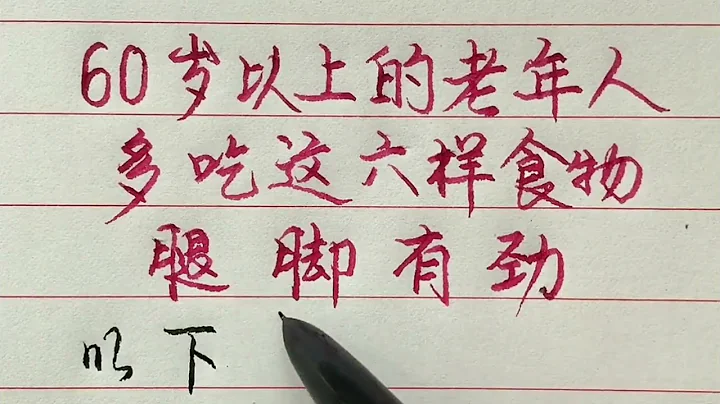 60岁以上的老年人
多吃这六样食物
腿脚有劲
以下